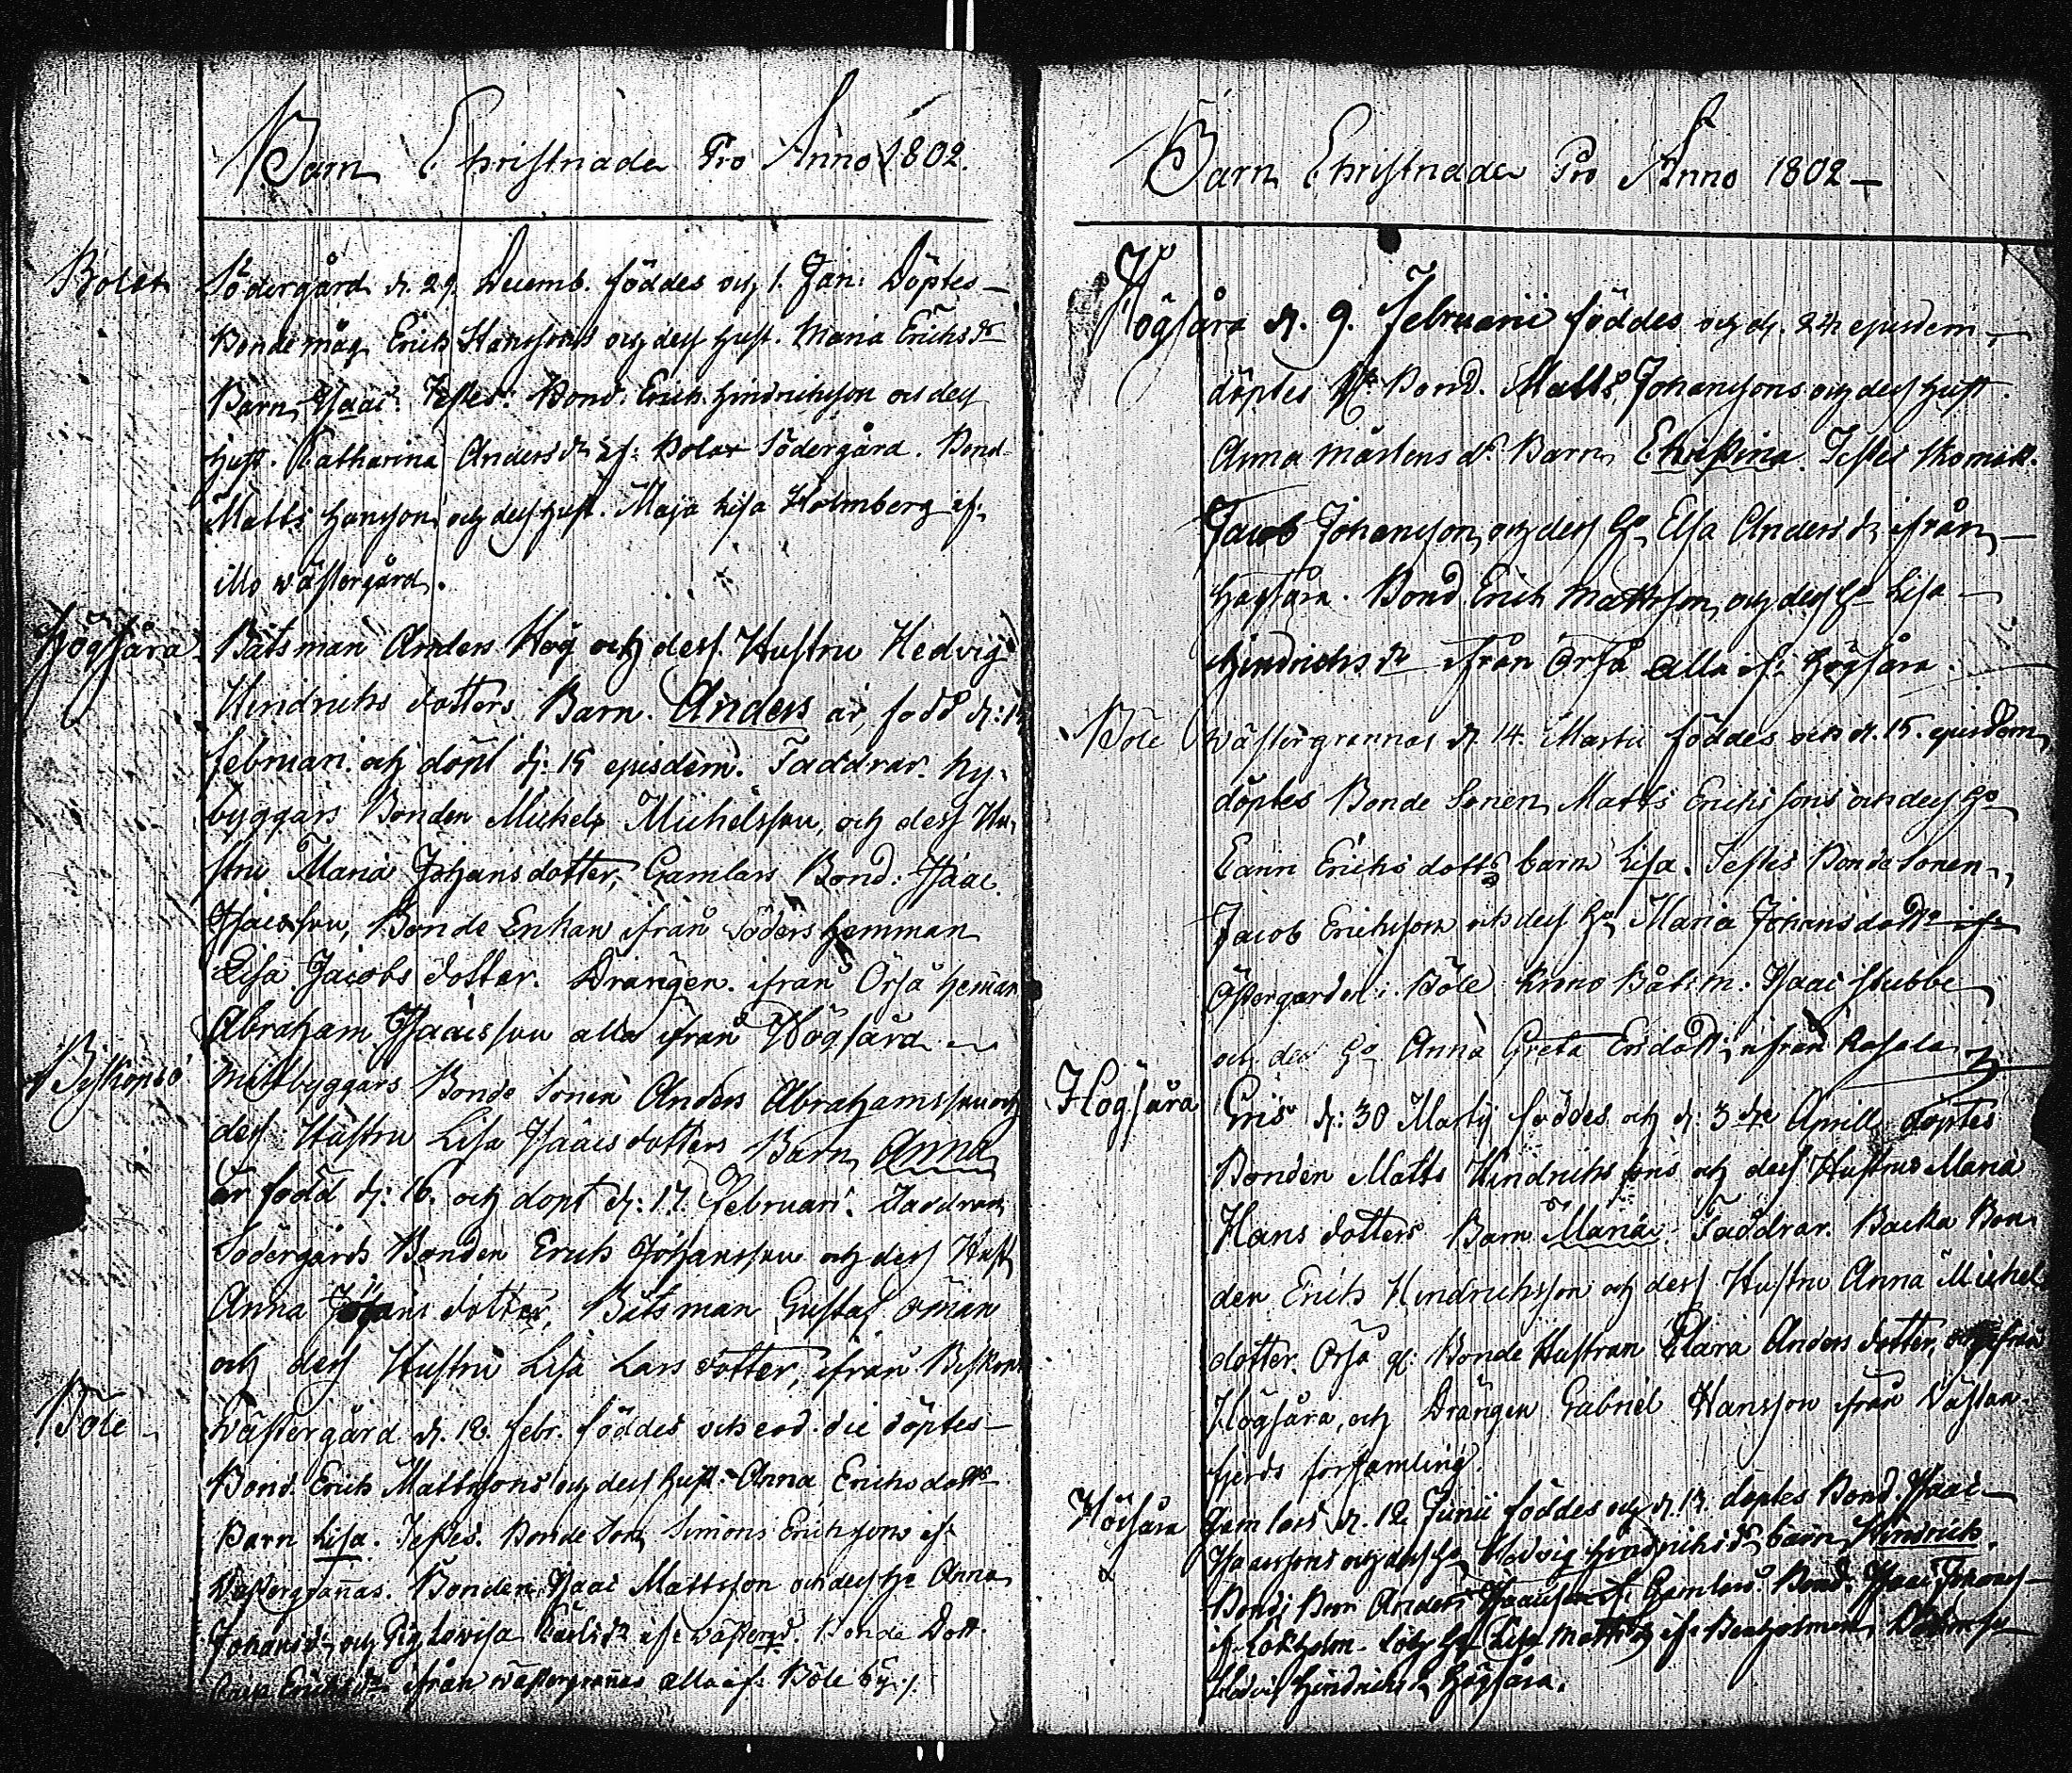 Barn Christnade Pro Anno 1802.
Bolax Södergård d. 29. Decemb. föddes och 1. Jan: Döptes
Bondemåg Erich Hanssons och dess hust. Maria Erichs dr
Barn Isaac. Testes: Bond. Erich Hindrichsson och dess
hust. Catharina Anders dr if: Bolax Södergård. Bond.
Matts Hansson och dess hust. Maja Lisa Holmberg if.
illo Wästergård.
Högsåra Båtsman Anders Hög och dess Hustru Hedvig
Hindrichs dotters Barn. Anders är född d:
Februari och döpt d: 15 ejusdem. Faddrar. Ny-
byggars Bonden Michel Michelsson, och dess Hu-
stru Maria Johansdotter, Gamlars Bond: Isaac
Isacsson, Bonde Enkan ifrån Söders hemman
Lisa Jacobs dotter. Drängen ifrån Örså heman
Abraham Isaacsson alla ifrån Högsåra
Byskopsö Mattbyggars Bonde Sonen Anders Abrahamsson och
dess Hustru Lisa Isaacs dotters Barn Anna
är född d: 16. och döpt d: 17. Februari. Faddrar
Södergårds Bonden Erich Johansson och dess Hust
Anna Johans dotter, Båtsman Gustaf Öman
och dess Hustru Lisa Lars dotter, ifrån Biskops
Böle Wästergård d. 18. Febr. föddes och eod. die döptes
Bond. Erich Mattssons och dess hust. Anna Erichs dottrs
Barn Lisa. Testes. Bonde Son Simon Erichsson if:
Wästergranas. Bonden Isaac Mattsson och dess Ho Anna
Johans dr och Pig Lovisa Carls dr if: Wästergd. Bonde Dott.
Erichs dr ifrån Wästergranas alla if: Böle by.
Barn Christnade Pro Anno 1802
Högsåra d. 9. Februarii föddes och d. 24 ejusdem
döptes Bond. Matts Johanssons och dess hust.
Anna Mårtens dr Barn Christina. Testes Skomak.
Jacob Johansson och dess Ho Elsa Anders dr ifrån
Högsåra. Bond Erich Mattsson och dess Ho Lisa
Hindrichs dr ifrån Örså alla if: Högsåra
Böle Wästergrannas d. 14. Martii föddes och d. 15. ejusdem
döptes Bonde Sonen Matts Erichssons och dess Ho
Carin Erichs dotts barn Lisa. Testes Bonde Sonen
Jacob Erichsson och dess Ho Maria Johansdottr if
Östergården i Böle Krono Båtsm. Isaac Stubbe
och dess Ho Anna Greta ifrån Rosala
Högsåra Gris d: 30 Martij föddes och d: 3 die Aprill döptes
Bonden Matts Hindrichssons och dess Hustrus Maria
Hans dotters Barn Maria. Faddrar. Backa Bon-
den Erich Hindrichsson och dess Hustru Anna Michels
dotter. Örså Bonde Hustrun Clara Anders dotter, ifrån
Högsåra, och Drängen Gabriel Hansson ifrån Västan-
fjerds församling.
Högsåra Gamlars d. 12 Junii föddes och d. 13. döptes Bond. Isaac
Isaacssons och dess Ho Hedvig Hindrichs dr barn Hindrich.
Bond. Bror Anders Isaacsson if Gamlars. Bond. Isaac
if Lökholm Ho Lisa Matts dr if
Hindrichs dr Högsåra.